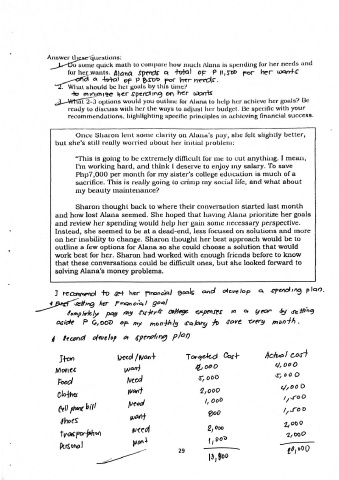 Answer these questions:
1. Do some quick math to compare how much Alana is spending for her needs and
for her wants. Alana spends a total of P 11,500 for her wants
and a total of P 8500 for her needs.
2. What should be her goals by this time?
to minimize her spending on her wants
3. What 2-3 options would you outline for Alana to help her achieve her goals? Be
ready to discuss with her the ways to adjust her budget. Be specific with your
recommendations, highlighting specific principles in achieving financial success.
Once Sharon lent some clarity on Alana's pay, she felt slightly better,
but she's still really worried about her initial problem:
"This is going to be extremely difficult for me to cut anything. I mean,
I'm working hard, and I think I deserve to enjoy my salary. To save
Php7,000 per month for my sister's college education is much of a
sacrifice. This is really going to crimp my social life, and what about
my beauty maintenance?
Sharon thought back to where their conversation started last month
and how lost Alana seemed. She hoped that having Alana prioritize her goals
and review her spending would help her gain some necessary perspective.
Instead, she seemed to be at a dead-end, less focused on solutions and more
on her inability to change. Sharon thought her best approach would be to
outline a few options for Alana so she could choose a solution that would
work best for her. Sharon had worked with enough friends before to know
that these conversations could be difficult ones, but she looked forward to
solving Alana's money problems.
I recommend to set her financial goals and develop a spending plan.
setting her Financial goal
Completely pay my sister's college expenses in a year by setting
aside P 6,000 of my monthly salary to save every month.
Second develop a spending plan
Item Need/Want Targeted Cost Actual cost
Movies want 2,000 4,000
Food Need 5,000 5,000
Clothes want 2,000 4,000
Cell phone bill Need 1,000 1,500
Shoes want 800 1,500
Transportation Need 2,000 2,000
Personal Want 1,000 2,000
29 13,800 20,000